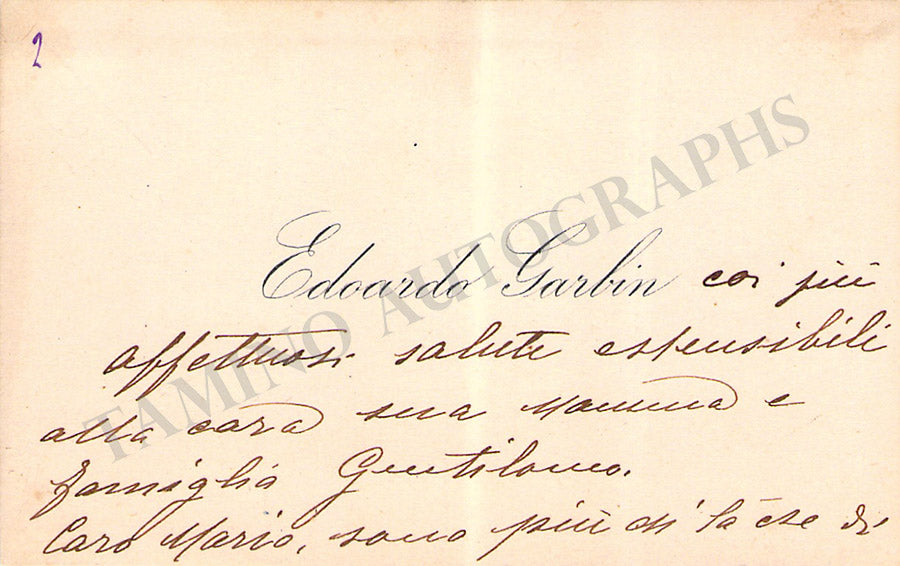 2
Edoardo Garbin coi più
affettuosi saluti estensibili
alla cara sua Mamma e
famiglia Gentilomo.
Caro Mario, sono più di là che di
TAMINO AUTOGRAPHS